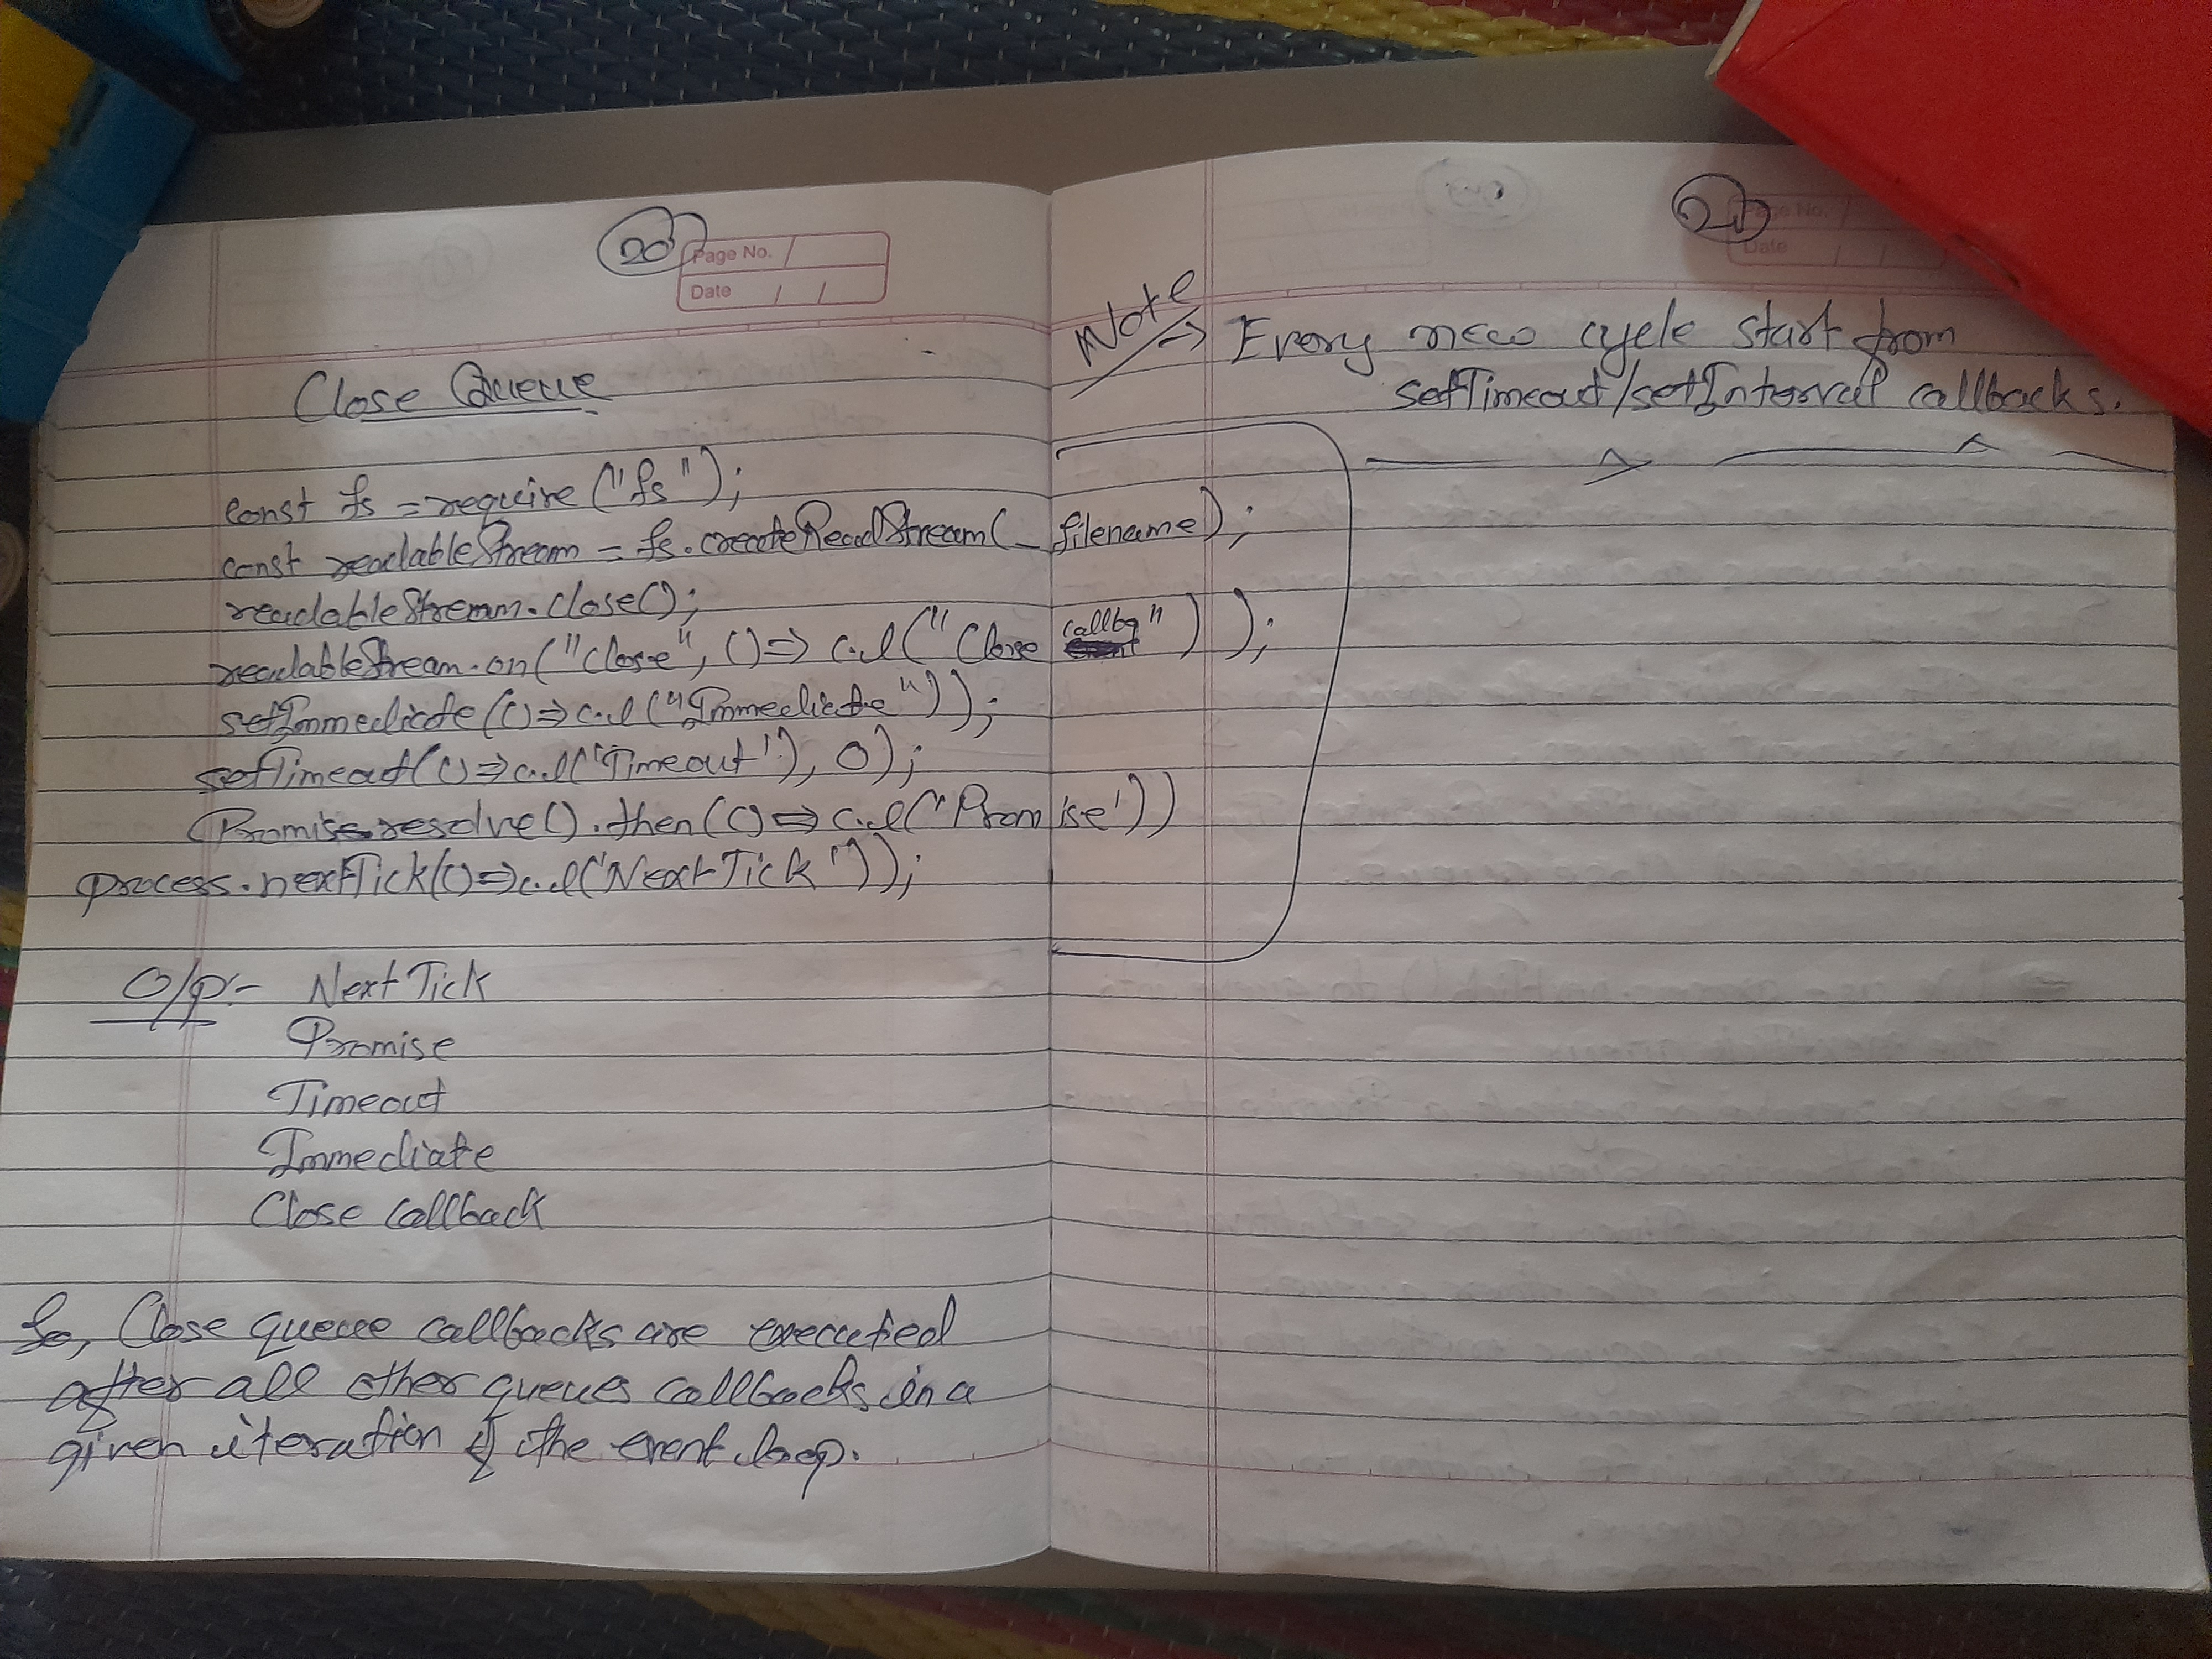 20
Page No.
Date / /
Close Queue
const fs = require("fs");
const readableStream = fs.createReadStream(_filename);
readableStream.close();
readableStream.on("close", () => c.l("Close callbq"));
setImmediate(() => c.l("Immediate"));
setTimeout(() => c.l('Timeout'), 0);
Promise.resolve().then(() => c.l('Promise'))
process.nextTick(() => c.l('NextTick'));
O/P:- NextTick
Promise
Timeout
Immediate
Close Callback
So, Close queue callbacks are executed
after all other queues callbacks in a
given iteration of the event loop.
21
Page No.
Date / /
Note → Every new cycle start from
setTimeout/setInterval callbacks.